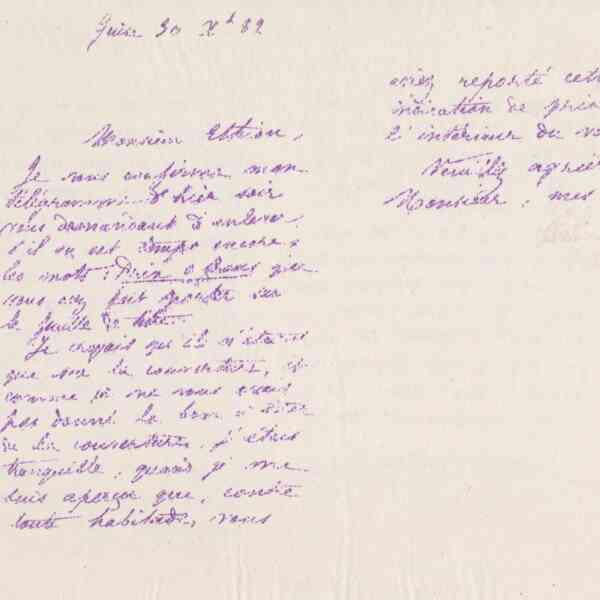 Guise 30 Xb 82
Monsieur
Je vous confirme mon
télégramme d'hier soir
vous demandant d'enlever,
s'il en est temps encore,
les mots : Prix 8 francs que
vous avez fait ajouter sur
la feuille de titre.
Je croyais qu'il n'était
que sur la couverture, et
comme je ne vous avais
pas donné le bon à tirer
de la couverture, j'étais
tranquille, quand je me
suis aperçu que, contre
toute habitude, vous
aviez reporté cette
indication de prix
à l'intérieur du
Veuillez agréer
Monsieur, mes